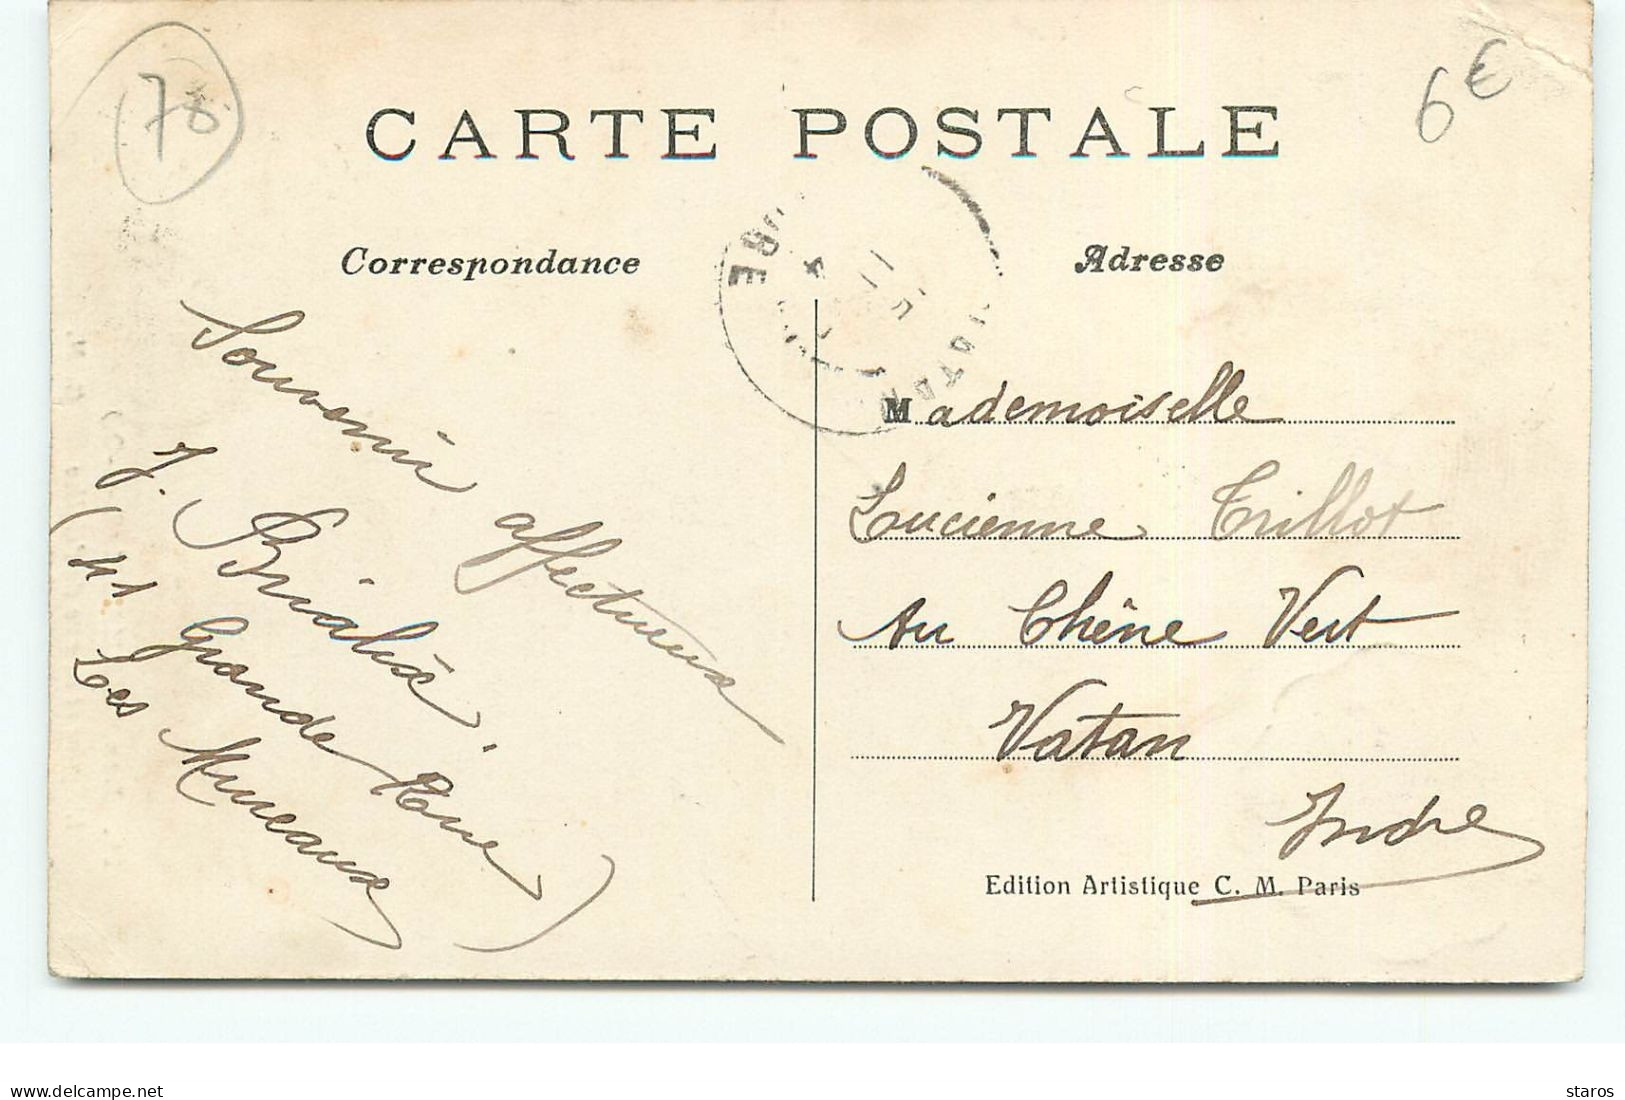 78
6€
CARTE POSTALE
Correspondance
Adresse
Souvenir affectueux
J.
(41 Grande Rue)
Les Mureaux
Mademoiselle
Lucienne Trillot
Au Chêne Vert
Vatan
Indre
Edition Artistique C. M. Paris
www.delcampe.net
staros